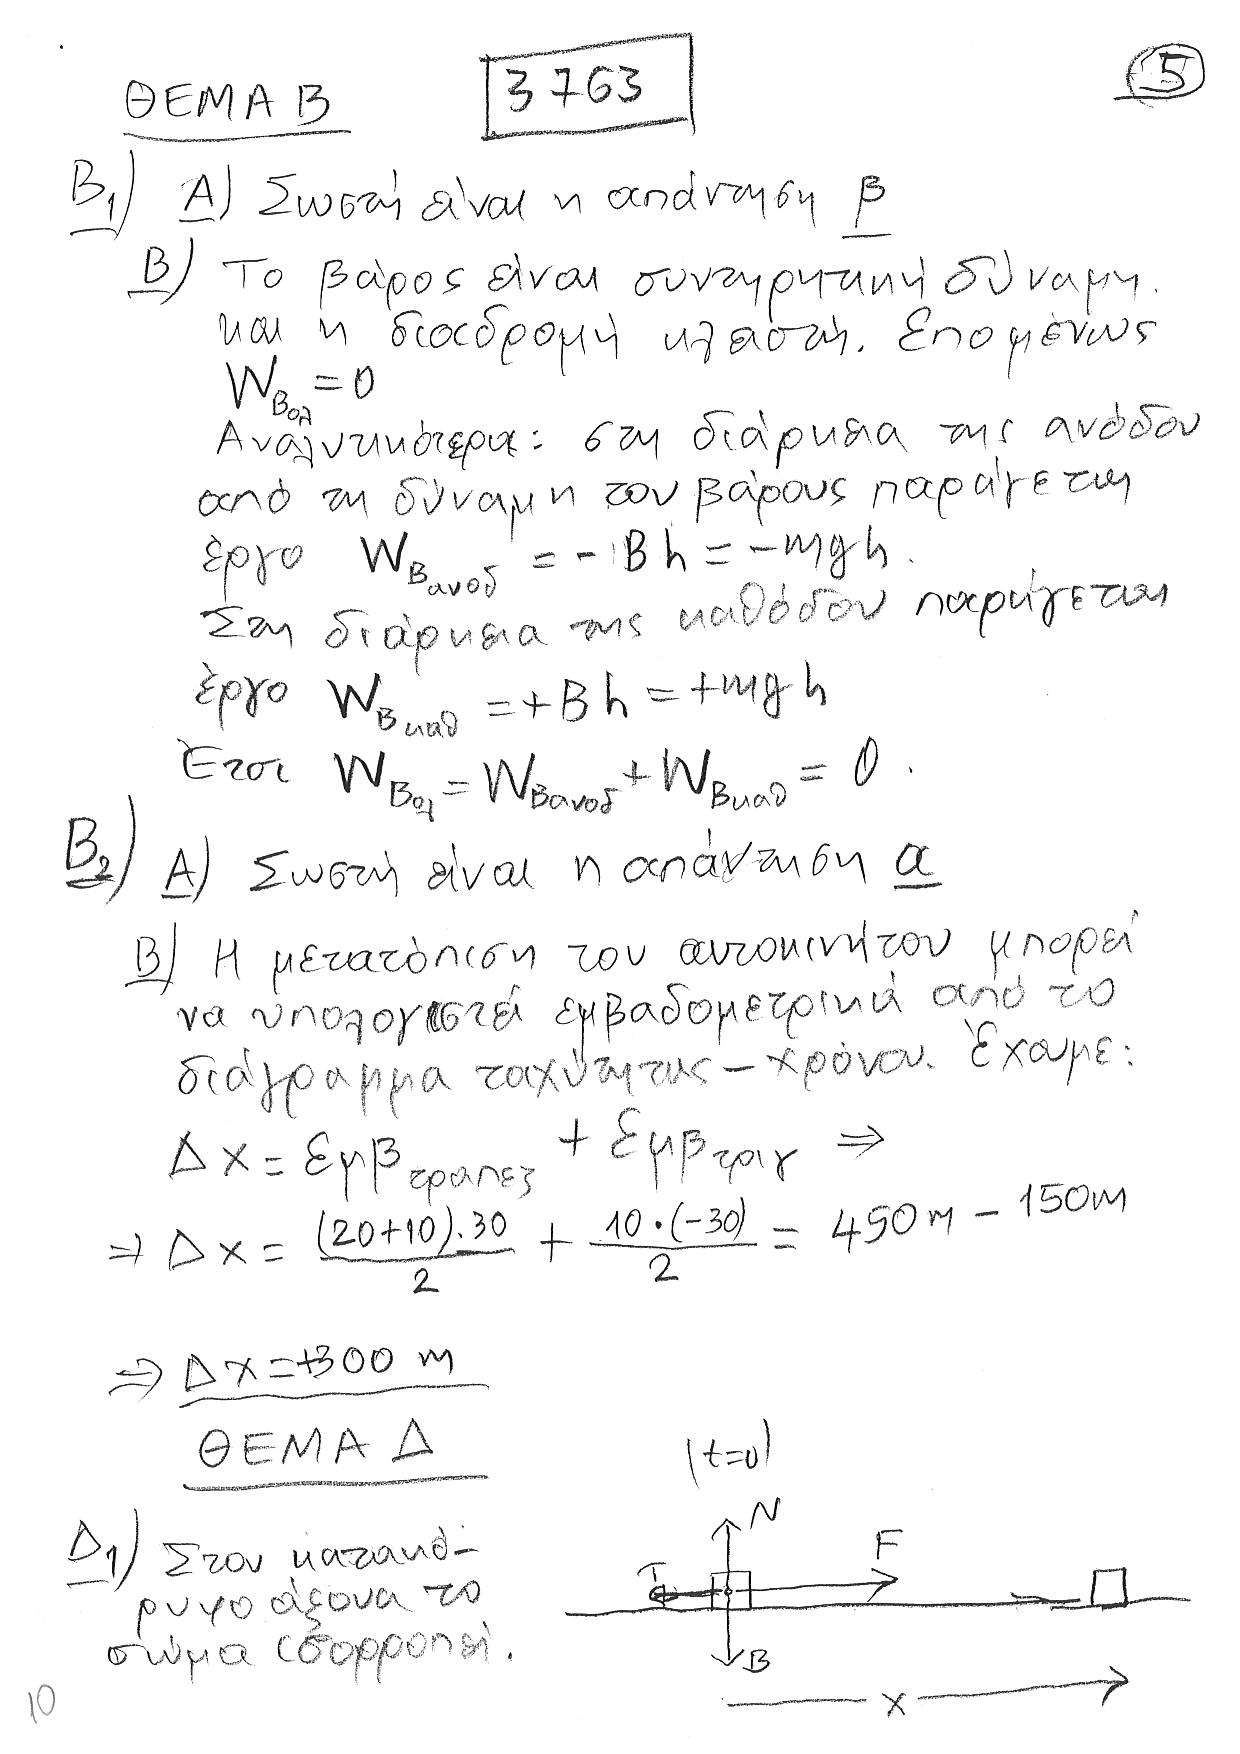 ΘΕΜΑ Β
3763
5
Β1) Α) Σωστή είναι η απάντηση β
Β) Το βάρος είναι συντηρητική δύναμη.
και η διαδρομή κλειστή. Επομένως
W_Βολ = 0
Αναλυτικότερα: στη διάρκεια της ανόδου
από τη δύναμη του βάρους παράγεται
έργο W_Βανοδ = -Βh = -mgh.
Στη διάρκεια της καθόδου παράγεται
έργο W_Βκαθ = +Βh = +mgh
Έτσι W_Βολ = W_Βανοδ + W_Βκαθ = 0.
Β2) Α) Σωστή είναι η απάντηση α
Β) Η μετατόπιση του αυτοκινήτου μπορεί
να υπολογιστεί εμβαδομετρικά από το
διάγραμμα ταχύτητας - χρόνου. Έχουμε:
Δx = Εμβ_τραπεζ + Εμβ_τριγ ⇒
⇒ Δx = (20+10).30/2 + 10·(-30)/2 = 450m - 150m
⇒ Δx = +300 m
ΘΕΜΑ Δ
(t=0)
Δ1) Στον κατακό-
ρυφο άξονα το
σώμα ισορροπεί.
N
F
T
B
x
10